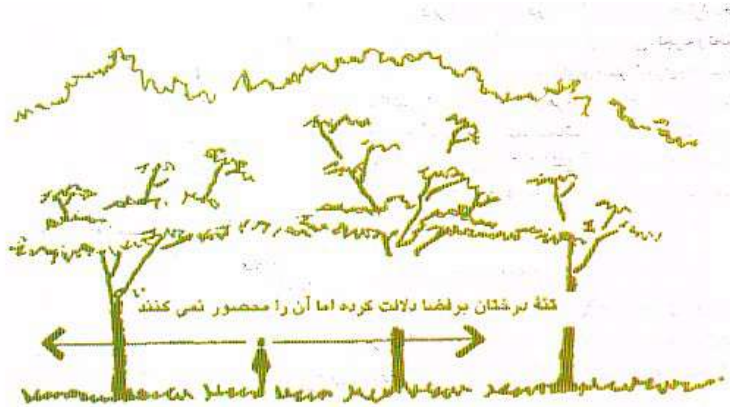 تنهٔ درختان برفضا دلالت کرده اما آن را محصور نمی کنند